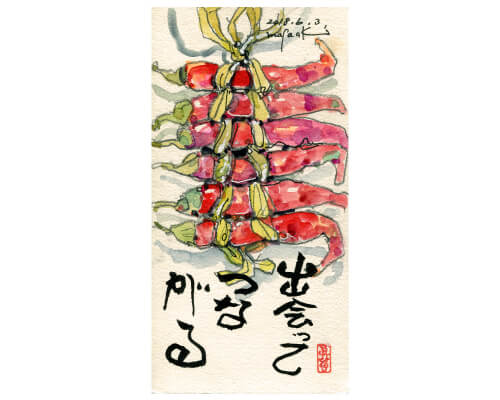 2018.6.3
masaaki
出会って
つな
がる